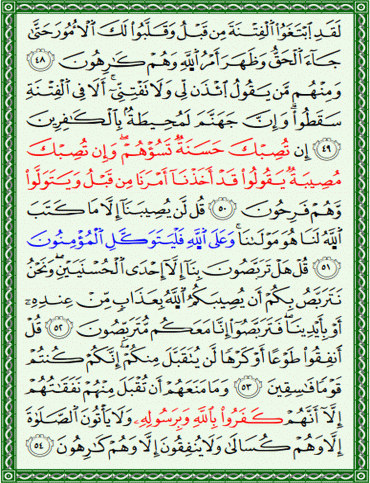 لَقَدِ ٱبْتَغَوُا۟ ٱلْفِتْنَةَ مِن قَبْلُ وَقَلَّبُوا۟ لَكَ ٱلْأُمُورَ حَتَّىٰ
جَآءَ ٱلْحَقُّ وَظَهَرَ أَمْرُ ٱللَّهِ وَهُمْ كَٰرِهُونَ ٤٨
وَمِنْهُم مَّن يَقُولُ ٱئْذَن لِّى وَلَا تَفْتِنِّىٓ ۚ أَلَا فِى ٱلْفِتْنَةِ
سَقَطُوا۟ ۗ وَإِنَّ جَهَنَّمَ لَمُحِيطَةٌۢ بِٱلْكَٰفِرِينَ
٤٩ إِن تُصِبْكَ حَسَنَةٌ تَسُؤْهُمْ ۖ وَإِن تُصِبْكَ
مُصِيبَةٌ يَقُولُوا۟ قَدْ أَخَذْنَآ أَمْرَنَا مِن قَبْلُ وَيَتَوَلَّوا۟
وَّهُمْ فَرِحُونَ ٥٠ قُل لَّن يُصِيبَنَآ إِلَّا مَا كَتَبَ
ٱللَّهُ لَنَا هُوَ مَوْلَىٰنَا ۚ وَعَلَى ٱللَّهِ فَلْيَتَوَكَّلِ ٱلْمُؤْمِنُونَ
٥١ قُلْ هَلْ تَرَبَّصُونَ بِنَآ إِلَّآ إِحْدَى ٱلْحُسْنَيَيْنِ ۖ وَنَحْنُ
نَتَرَبَّصُ بِكُمْ أَن يُصِيبَكُمُ ٱللَّهُ بِعَذَابٍ مِّنْ عِندِهِۦٓ
أَوْ بِأَيْدِينَا ۖ فَتَرَبَّصُوٓا۟ إِنَّا مَعَكُم مُّتَرَبِّصُونَ ٥٢ قُلْ
أَنفِقُوا۟ طَوْعًا أَوْ كَرْهًا لَّن يُتَقَبَّلَ مِنكُمْ ۖ إِنَّكُمْ كُنتُمْ
قَوْمًا فَٰسِقِينَ ٥٣ وَمَا مَنَعَهُمْ أَن تُقْبَلَ مِنْهُمْ نَفَقَٰتُهُمْ
إِلَّآ أَنَّهُمْ كَفَرُوا۟ بِٱللَّهِ وَبِرَسُولِهِۦ وَلَا يَأْتُونَ ٱلصَّلَوٰةَ
إِلَّا وَهُمْ كُسَالَىٰ وَلَا يُنفِقُونَ إِلَّا وَهُمْ كَٰرِهُونَ ٥٤